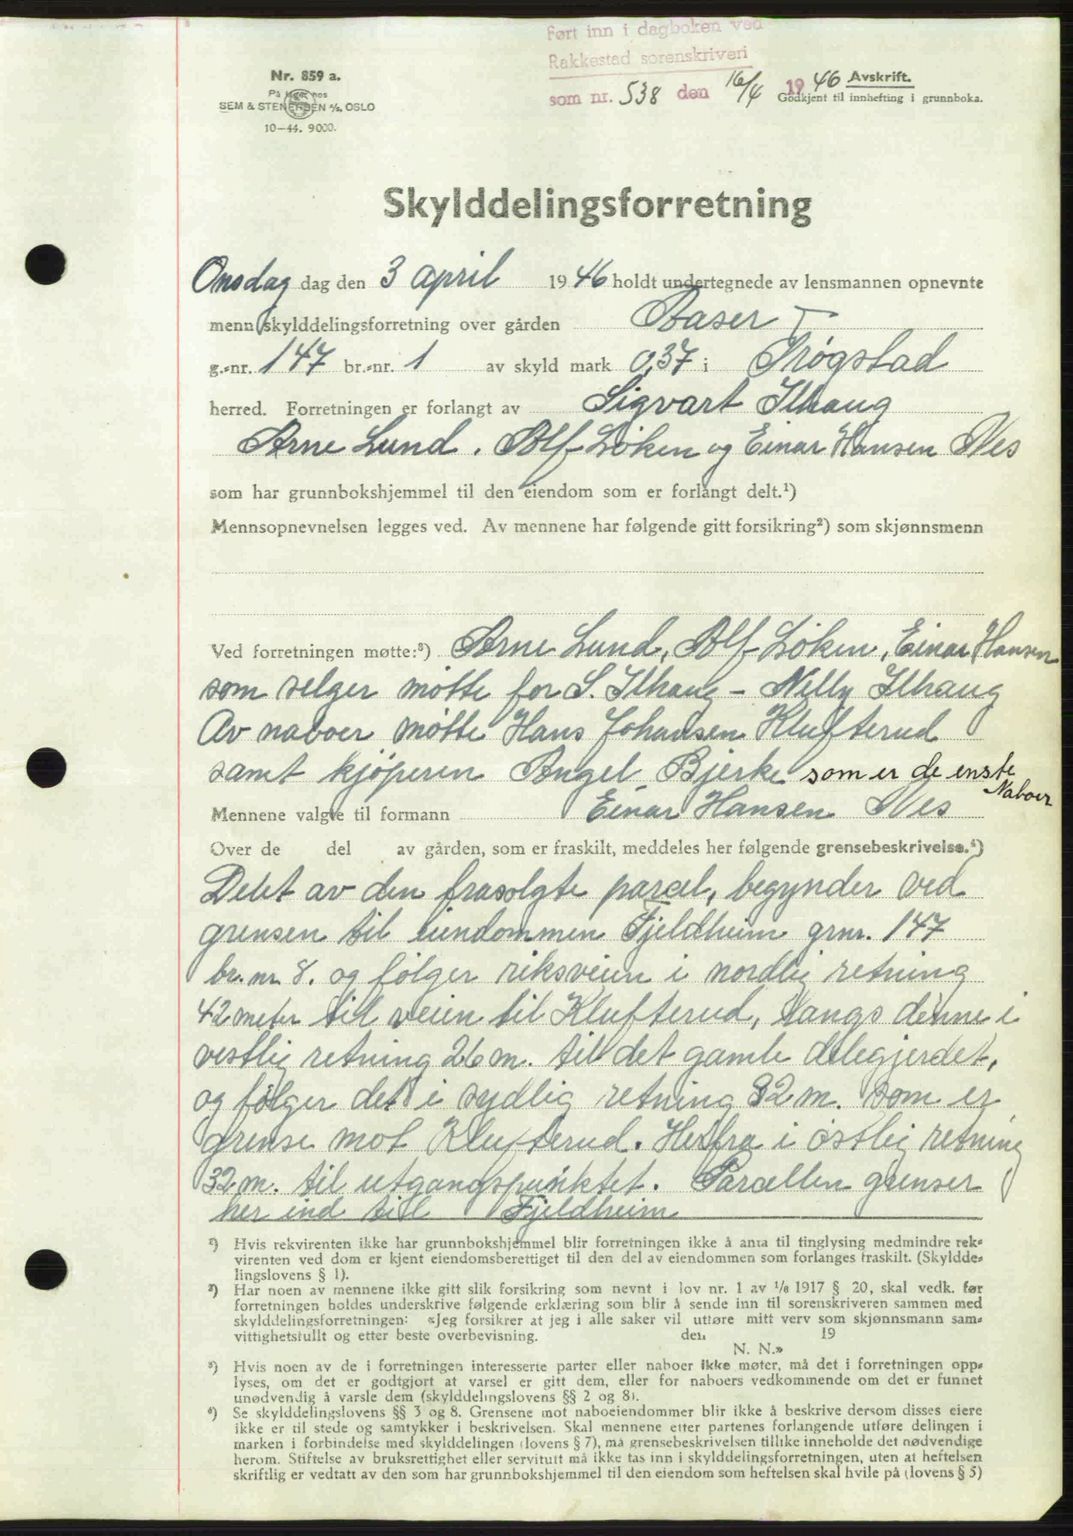 Ført inn i dagboken ved
Rakkestad sorenskriveri
som nr. 538 den 16/4 1946
Avskrift.
Godkjent til innhefting i grunnboka.
Nr. 859 a.
På lager hos
SEM & STENERSEN A/S, OSLO
10-44. 9000.
Skylddelingsforretning
Onsdag dag den 3 april 1946 holdt undertegnede av lensmannen opnevnte
menn skylddelingsforretning over gården Baser
g.-nr. 147 br.-nr. 1 av skyld mark 0,37 i Trøgstad
herred. Forretningen er forlangt av Sigvart Ilhaug
Arne Lund. Alf Løken og Einar Hansen Nes
som har grunnbokshjemmel til den eiendom som er forlangt delt.¹)
Mennsopnevnelsen legges ved. Av mennene har følgende gitt forsikring²) som skjønnsmenn
Ved forretningen møtte:³) Arne Lund, Alf Løken, Einar Hansen
som selger møtte for S. Ilhaug - Nelly Ilhaug
Av naboer møtte Hans Johansen Klufterud
samt kjøperen Angel Bjerke som er de enste
Naboer
Mennene valgte til formann Einar Hansen Nes
Over de del av gården, som er fraskilt, meddeles her følgende grensebeskrivelse.⁴)
Delet av den frasolgte parcel, begynder ved
grensen til eiendommen Fjeldheim grnr. 147
br. nr. 8. og følger riksveien i nordlig retning
42 meter til veien til Klufterud, langs denne i
vestlig retning 26 m. til det gamle delegjerdet,
og følger det i sydlig retning 32 m. som er
grense mot Klufterud. Herfra i østlig retning
32 m. til utgangspunktet. Parcellen grenser
her ind til Fjeldheim
¹) Hvis rekvirenten ikke har grunnbokshjemmel blir forretningen ikke å anta til tinglysing medmindre rek-
virenten ved dom er kjent eiendomsberettiget til den del av eiendommen som forlanges fraskilt. (Skyldde-
lingslovens § 1).
²) Har noen av mennene ikke gitt slik forsikring som nevnt i lov nr. 1 av 1/8 1917 § 20, skal vedk. før
forretningen holdes underskrive følgende erklæring som blir å sende inn til sorenskriveren sammen med
skylddelingsforretningen: «Jeg forsikrer at jeg i alle saker vil utføre mitt verv som skjønnsmann sam-
vittighetsfullt og etter beste overbevisning. den 19
N. N.»
³) Hvis noen av de i forretningen interesserte parter eller naboer ikke møter, må det i forretningen opp-
lyses, om det er godtgjort at varsel er gitt dem, eller for naboers vedkommende om det er funnet
unødvendig å varsle dem (skylddelingslovens §§ 2 og 8).
⁴) Se skylddelingslovens §§ 3 og 8. Grensene mot naboeiendommer blir ikke å beskrive dersom disses eiere
ikke er til stede og samtykker i beskrivelsen. Skal mennene etter partenes forlangende utføre delingen i
marken i forbindelse med skylddelingen (lovens § 7), må grensebeskrivelsen tillike inneholde det nødvendige
herom. Stiftelse av bruksrettighet eller servitutt må ikke tas inn i skylddelingsforretningen, uten at heftelsen
skriftlig er vedtatt av den som har grunnbokshjemmel til den eiendom som heftelsen skal hvile på (lovens § 5)